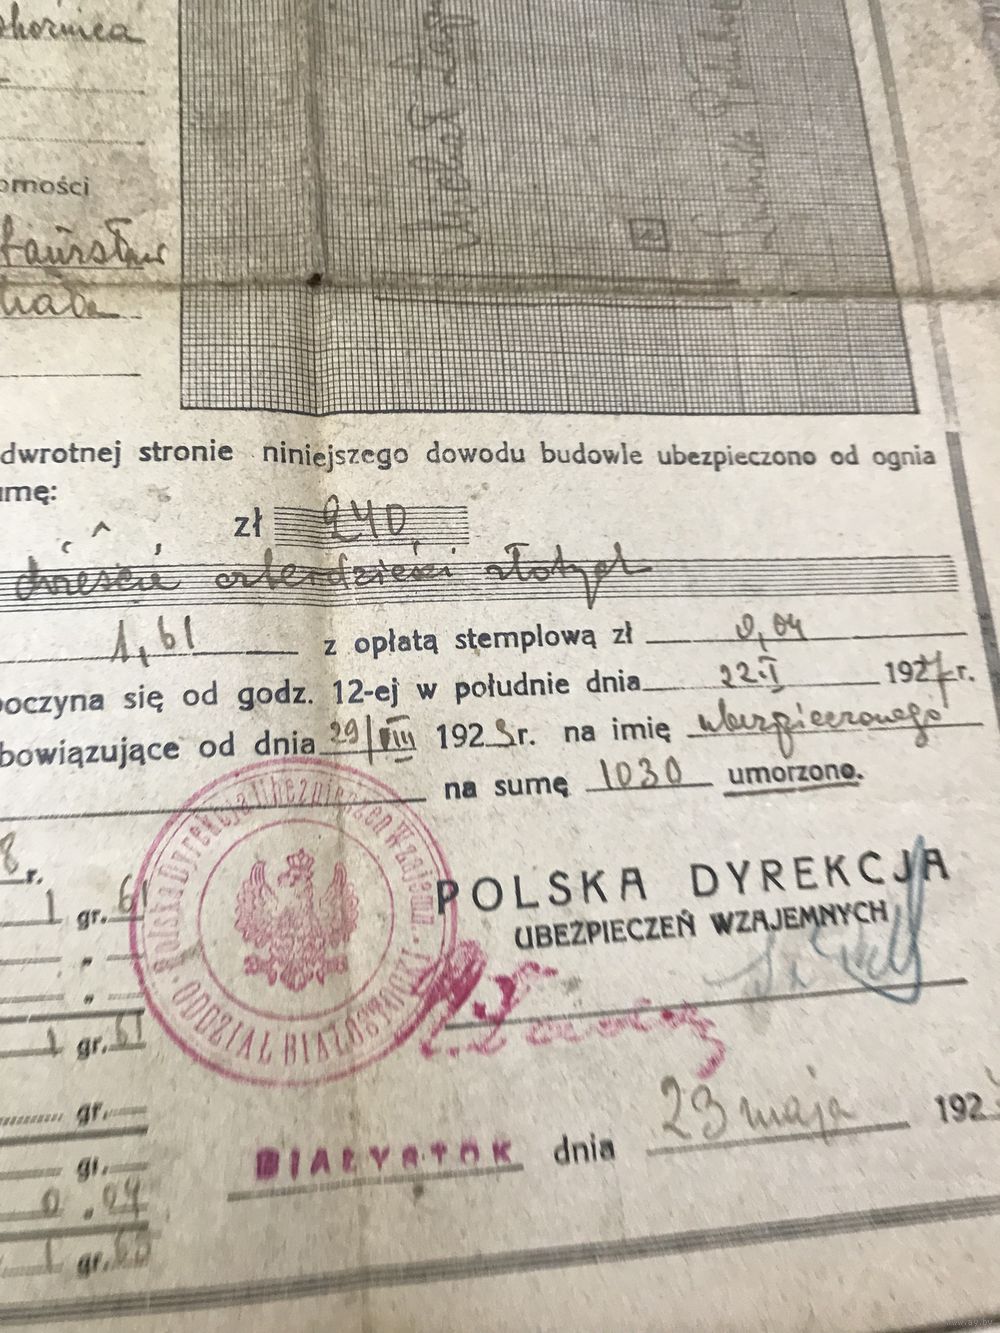 orności
dwrotnej stronie niniejszego dowodu budowle ubezpieczono od ognia
umę:
zł 240,
dwieście czterdzieści złotych
1,61 z opłatą stemplową zł 0,04
oczyna się od godz. 12-ej w południe dnia 22.I 1927 r.
bowiązujące od dnia 29/VIII 192 r. na imię ubezpieczonego
na sumę 1030 umorzono.
8 r.
1 gr. 61
"
"
1 gr. 61
gr.
gr.
0.04
1 gr. 65
POLSKA DYREKCJA
UBEZPIECZEŃ WZAJEMNYCH
Polska Dyrekcja Ubezpieczeń Wzajemnych
ODDZIAŁ BIAŁOSTOCKI
BIAŁYSTOK dnia 23 maja 192
www.ay.by